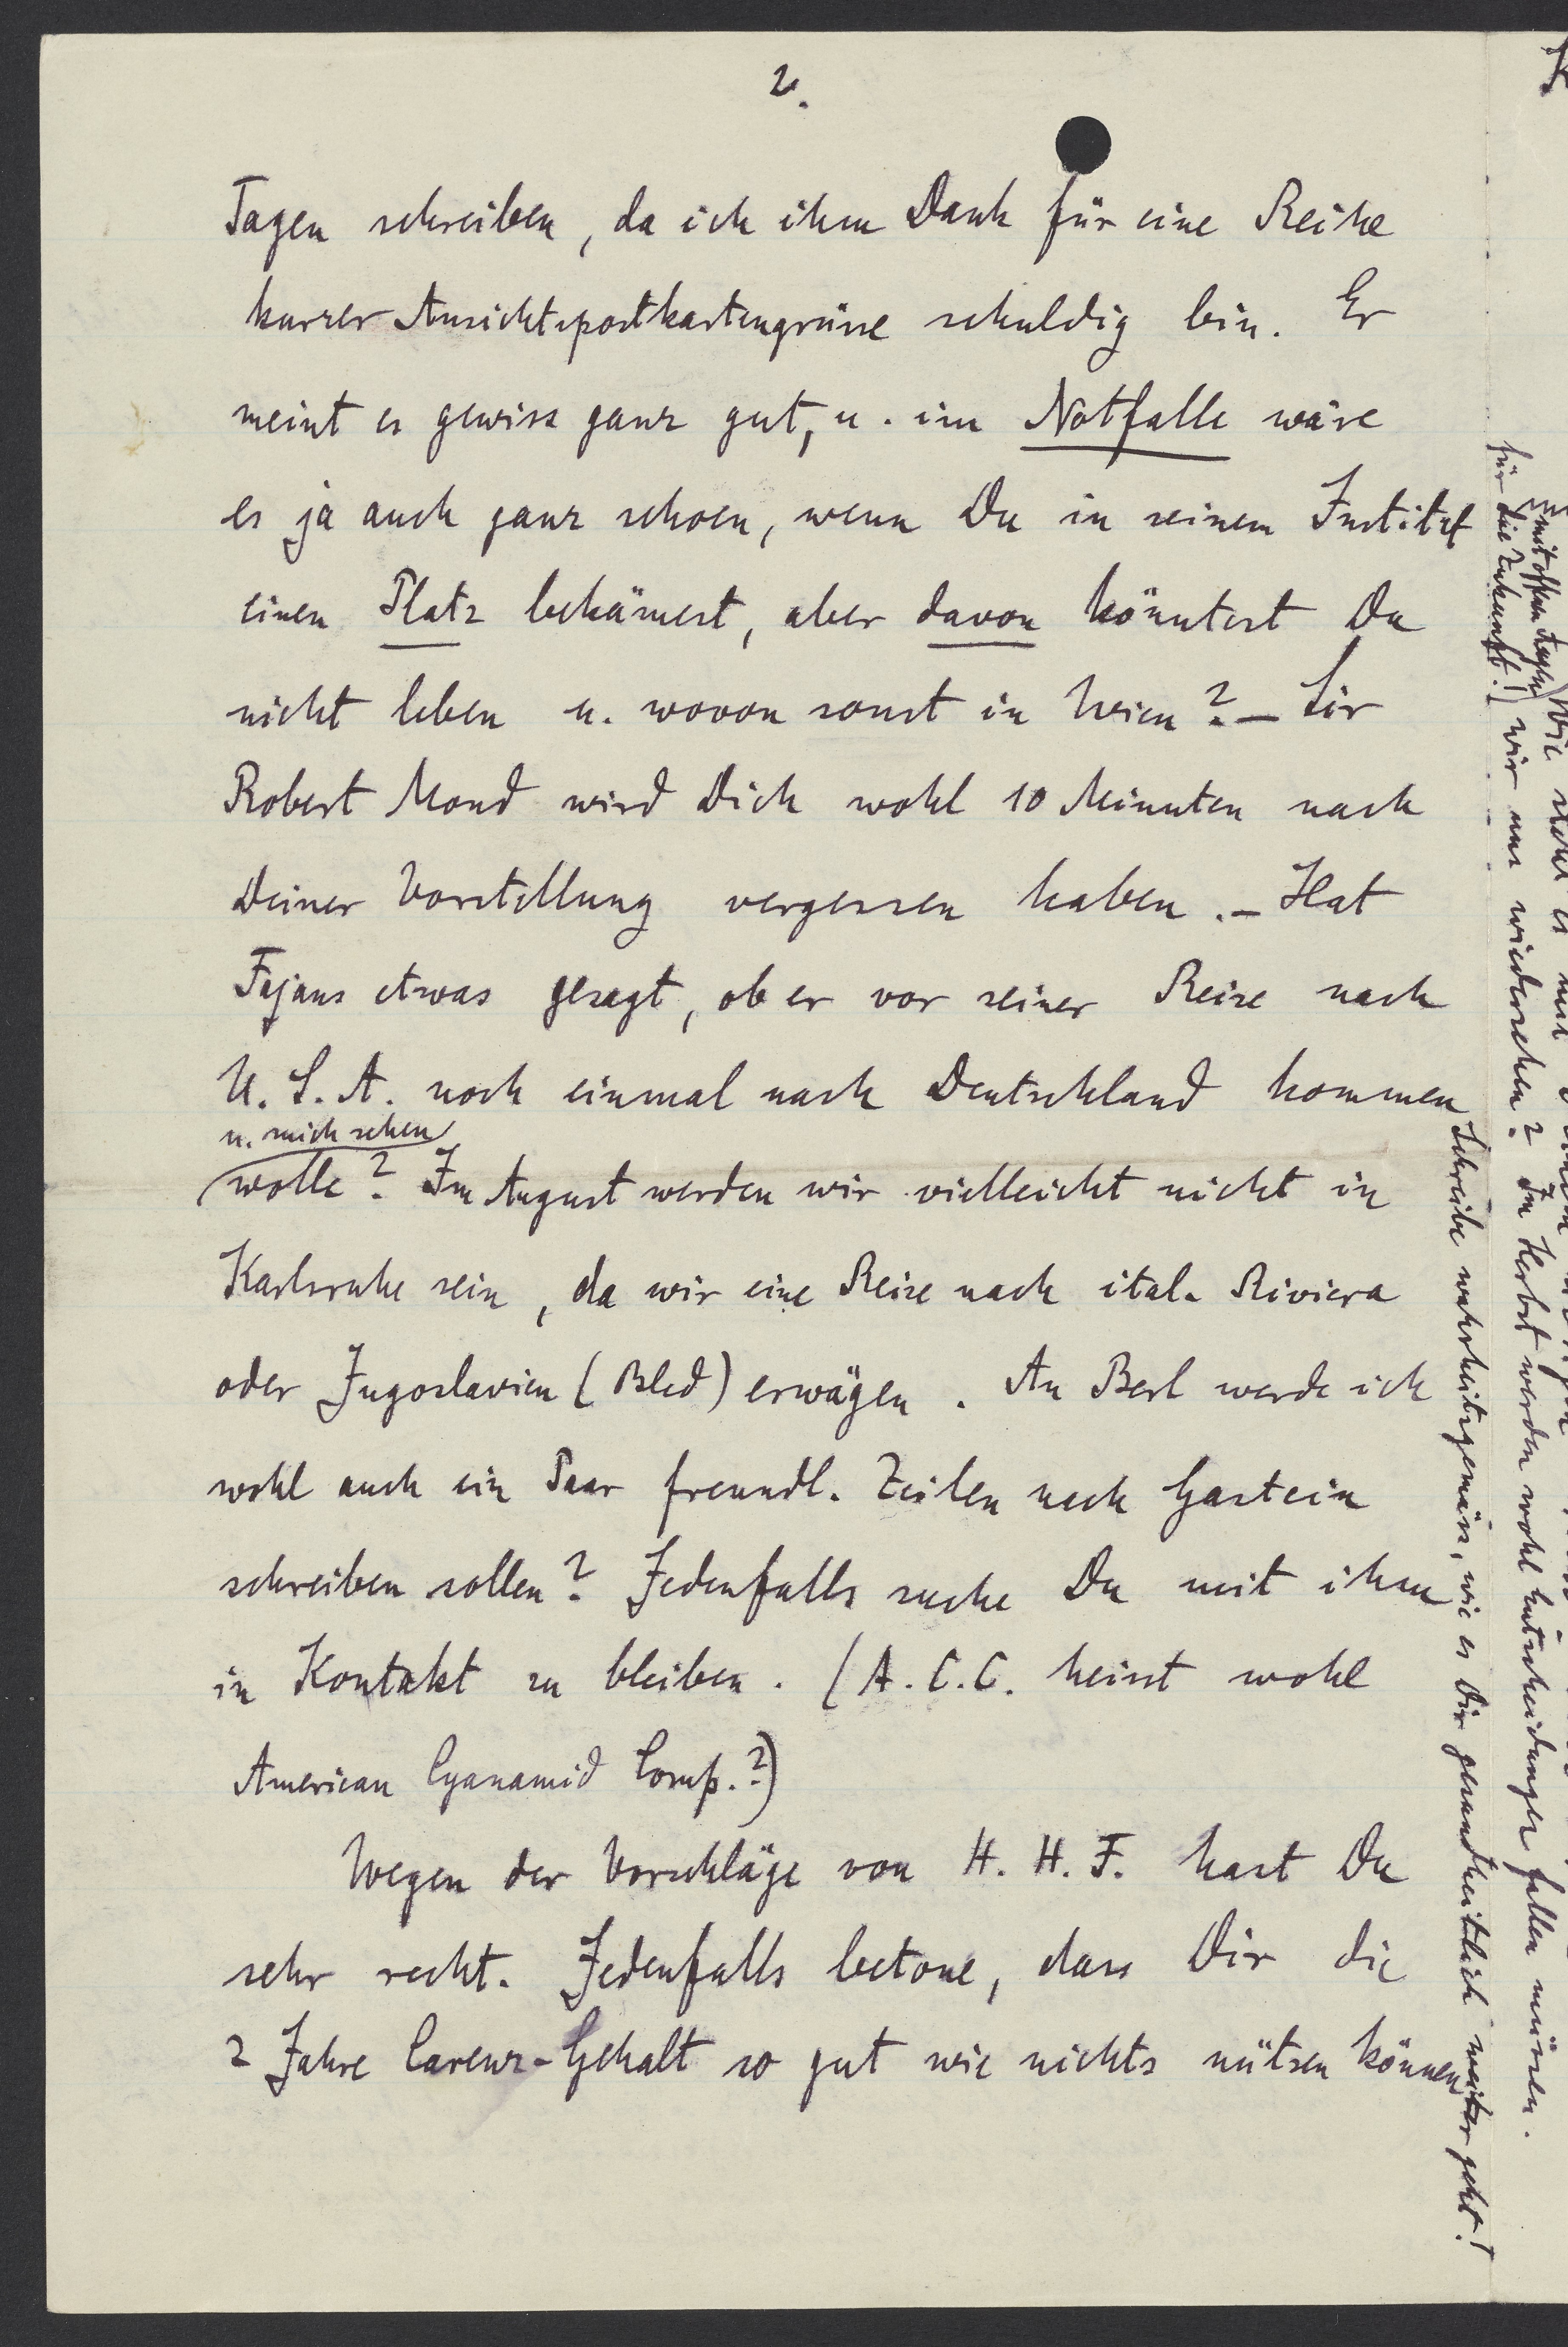 2.
Tagen schreiben, da ich ihm Dank für eine Reihe
kurzer Ansichtspostkartengrüsse schuldig bin. Er
meint es gewiss ganz gut, u. im Notfalle wäre
es ja auch ganz schoen, wenn Du in seinem Institut
einen Platz bekämest, aber davon könntest Du
nicht leben u. wovon sonst in Wien? — Sir
Robert Mond wird Dich wohl 10 Minuten nach
Deiner Vorstellung vergessen haben. — Hat
Fajans etwas gesagt, ob er vor seiner Reise nach
U.S.A. noch einmal nach Deutschland kommen
u. mich sehen
wolle? Im August werden wir vielleicht nicht in
Karlsruhe sein, da wir eine Reise nach ital. Riviera
oder Jugoslavien (Bled) erwägen. An Berl werde ich
wohl auch ein Paar freundl. Zeilen nach Gastein
schreiben sollen? Jedenfalls suche Du mit ihm
in Kontakt zu bleiben. (A.C.C. heisst wohl
American Cyanamid Comp.?)
Wegen der Vorschläge von H.H.F. hast Du
sehr recht. Jedenfalls betone, dass Dir die
2 Jahre Carenz-Gehalt so gut wie nichts nützen können,
Schreibe wahrheitsgemäss, wie es Dir gesundheitlich weiter geht!
für die Zukunft!) wir uns wiedersehen? Im Herbst werden wohl Entscheidungen fallen müssen.
mit offen Augen) Wie steht es mit